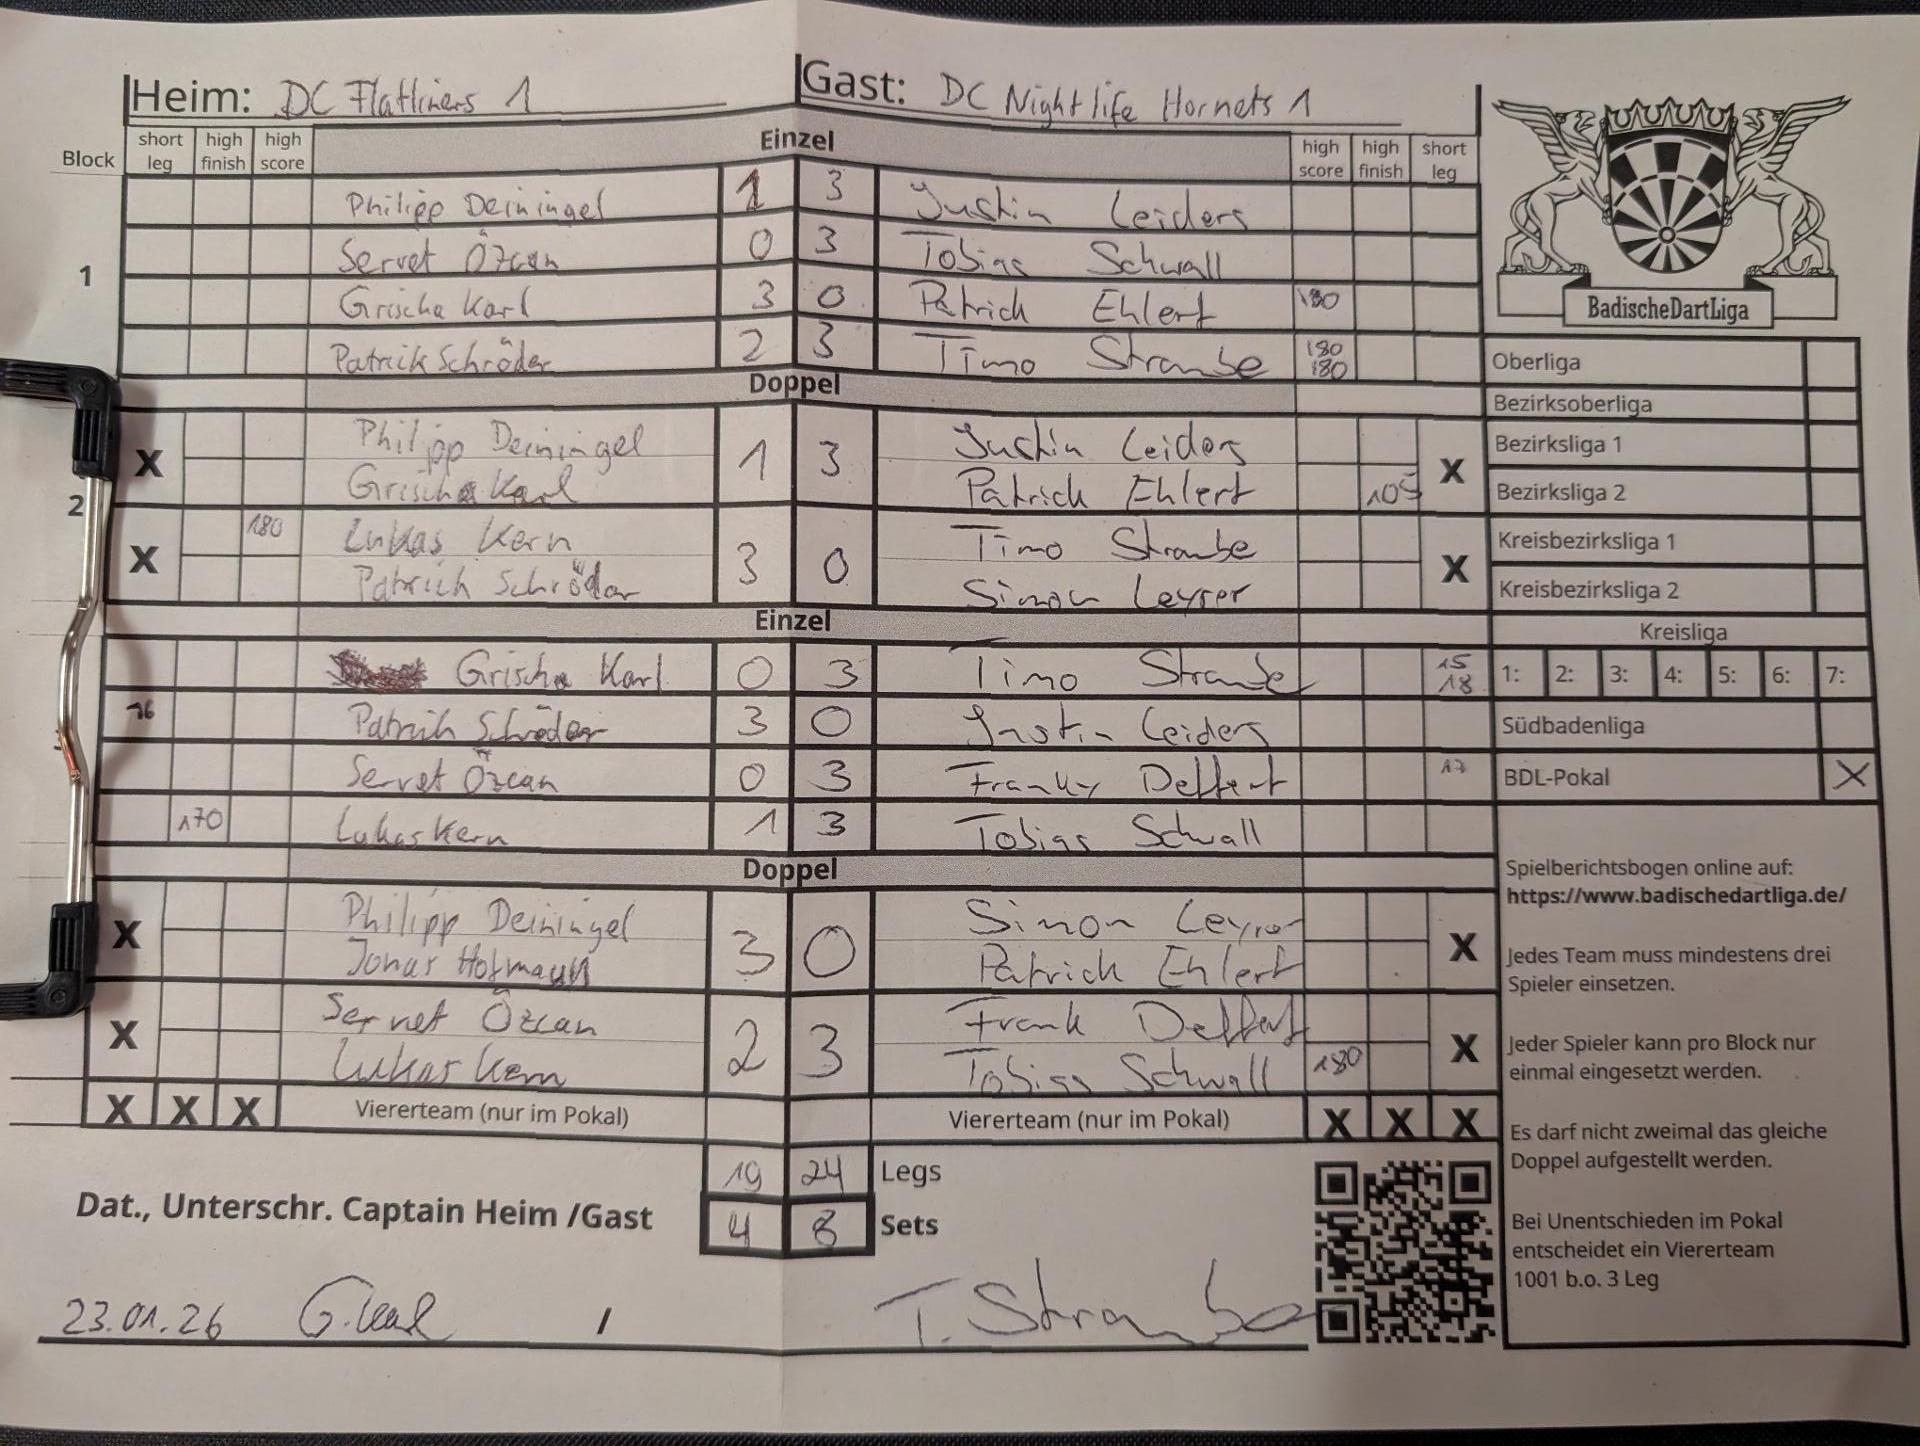 Heim: DC Flatliners 1 Gast: DC Nightlife Hornets 1
Block short leg high finish high score Einzel high score high finish short leg
1
Philipp Deiningel 1 3 Justin Leiders
Servet Özcan 0 3 Tobias Schwall
Grischa Karl 3 0 Patrick Ehlert 180
Patrik Schröder 2 3 Timo Straube 180 180
Doppel
2
X Philipp Deiningel 1 3 Justin Leiders X
Grischa Karl Patrick Ehlert 105
X 180 Lukas Kern 3 0 Timo Straube X
Patrick Schröder Simon Leyrer
Einzel
Grischa Karl 0 3 Timo Straube 15 18
16 Patrik Schröder 3 0 Justin Leiders
Servet Özcan 0 3 Franky Delfert 17
170 Lukas Kern 1 3 Tobias Schwall
Doppel
X Philipp Deiningel 3 0 Simon Leyrer X
Jonas Hofmann Patrick Ehlert
X Servet Özcan 2 3 Frank Delfert X
Lukas Kern Tobias Schwall 180
X X X Viererteam (nur im Pokal) Viererteam (nur im Pokal) X X X
19 24 Legs
4 8 Sets
Dat., Unterschr. Captain Heim /Gast
23.01.26 G. Karl / T. Straube
BadischeDartLiga
Oberliga
Bezirksoberliga
Bezirksliga 1
Bezirksliga 2
Kreisbezirksliga 1
Kreisbezirksliga 2
Kreisliga
1: 2: 3: 4: 5: 6: 7:
Südbadenliga
BDL-Pokal X
Spielberichtsbogen online auf:
https://www.badischedartliga.de/
Jedes Team muss mindestens drei
Spieler einsetzen.
Jeder Spieler kann pro Block nur
einmal eingesetzt werden.
Es darf nicht zweimal das gleiche
Doppel aufgestellt werden.
Bei Unentschieden im Pokal
entscheidet ein Viererteam
1001 b.o. 3 Leg